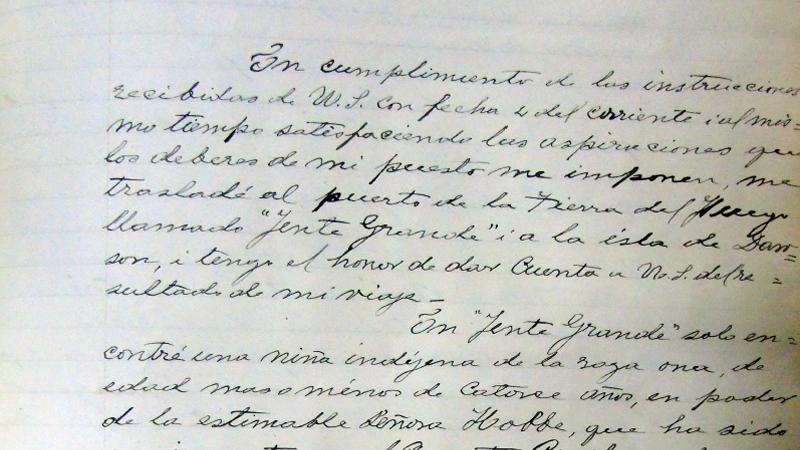 En cumplimiento de las instrucciones
recibidas de U.S. con fecha 2 del corriente i al mis-
mo tiempo satisfaciendo las aspiraciones que
los deberes de mi puesto me imponen, me
trasladé al puerto de la Tierra del Fuego
llamado "Jente Grande" i a la isla de Daw=
son, i tengo el honor de dar cuenta a U.S. del re=
sultado de mi viaje—
En "Jente Grande" solo en=
contré una niña indíjena de la raza ona, de
edad mas o ménos de catorce años, en poder
de la estimable Señora Hobbe, que ha sido